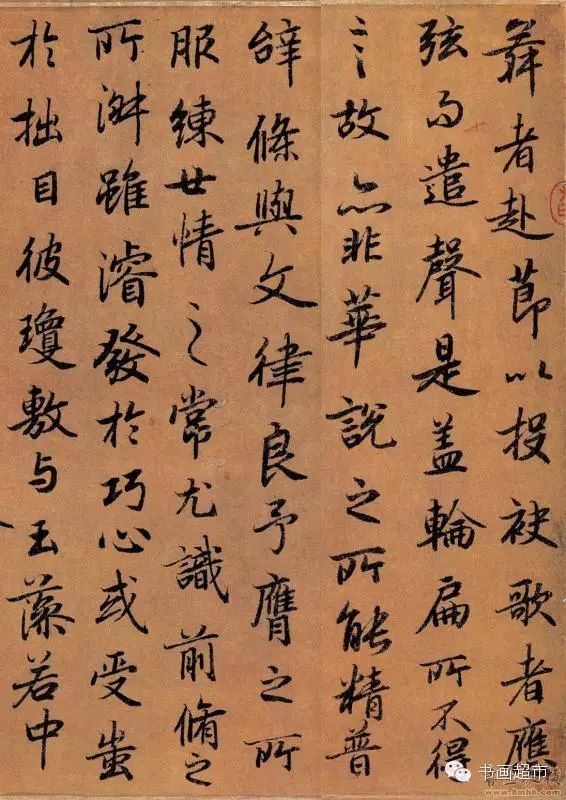 舞者赴莭以投袂歌者應
弦而遣聲是盖輪扁所不得
言故亦非華說之所能精普
辞條與文律良予膺之所
服練世情之常尤識前脩之
所淋雖濬發於巧心或受蚩
於拙目彼瓊敷与玉藻若中
书画超市